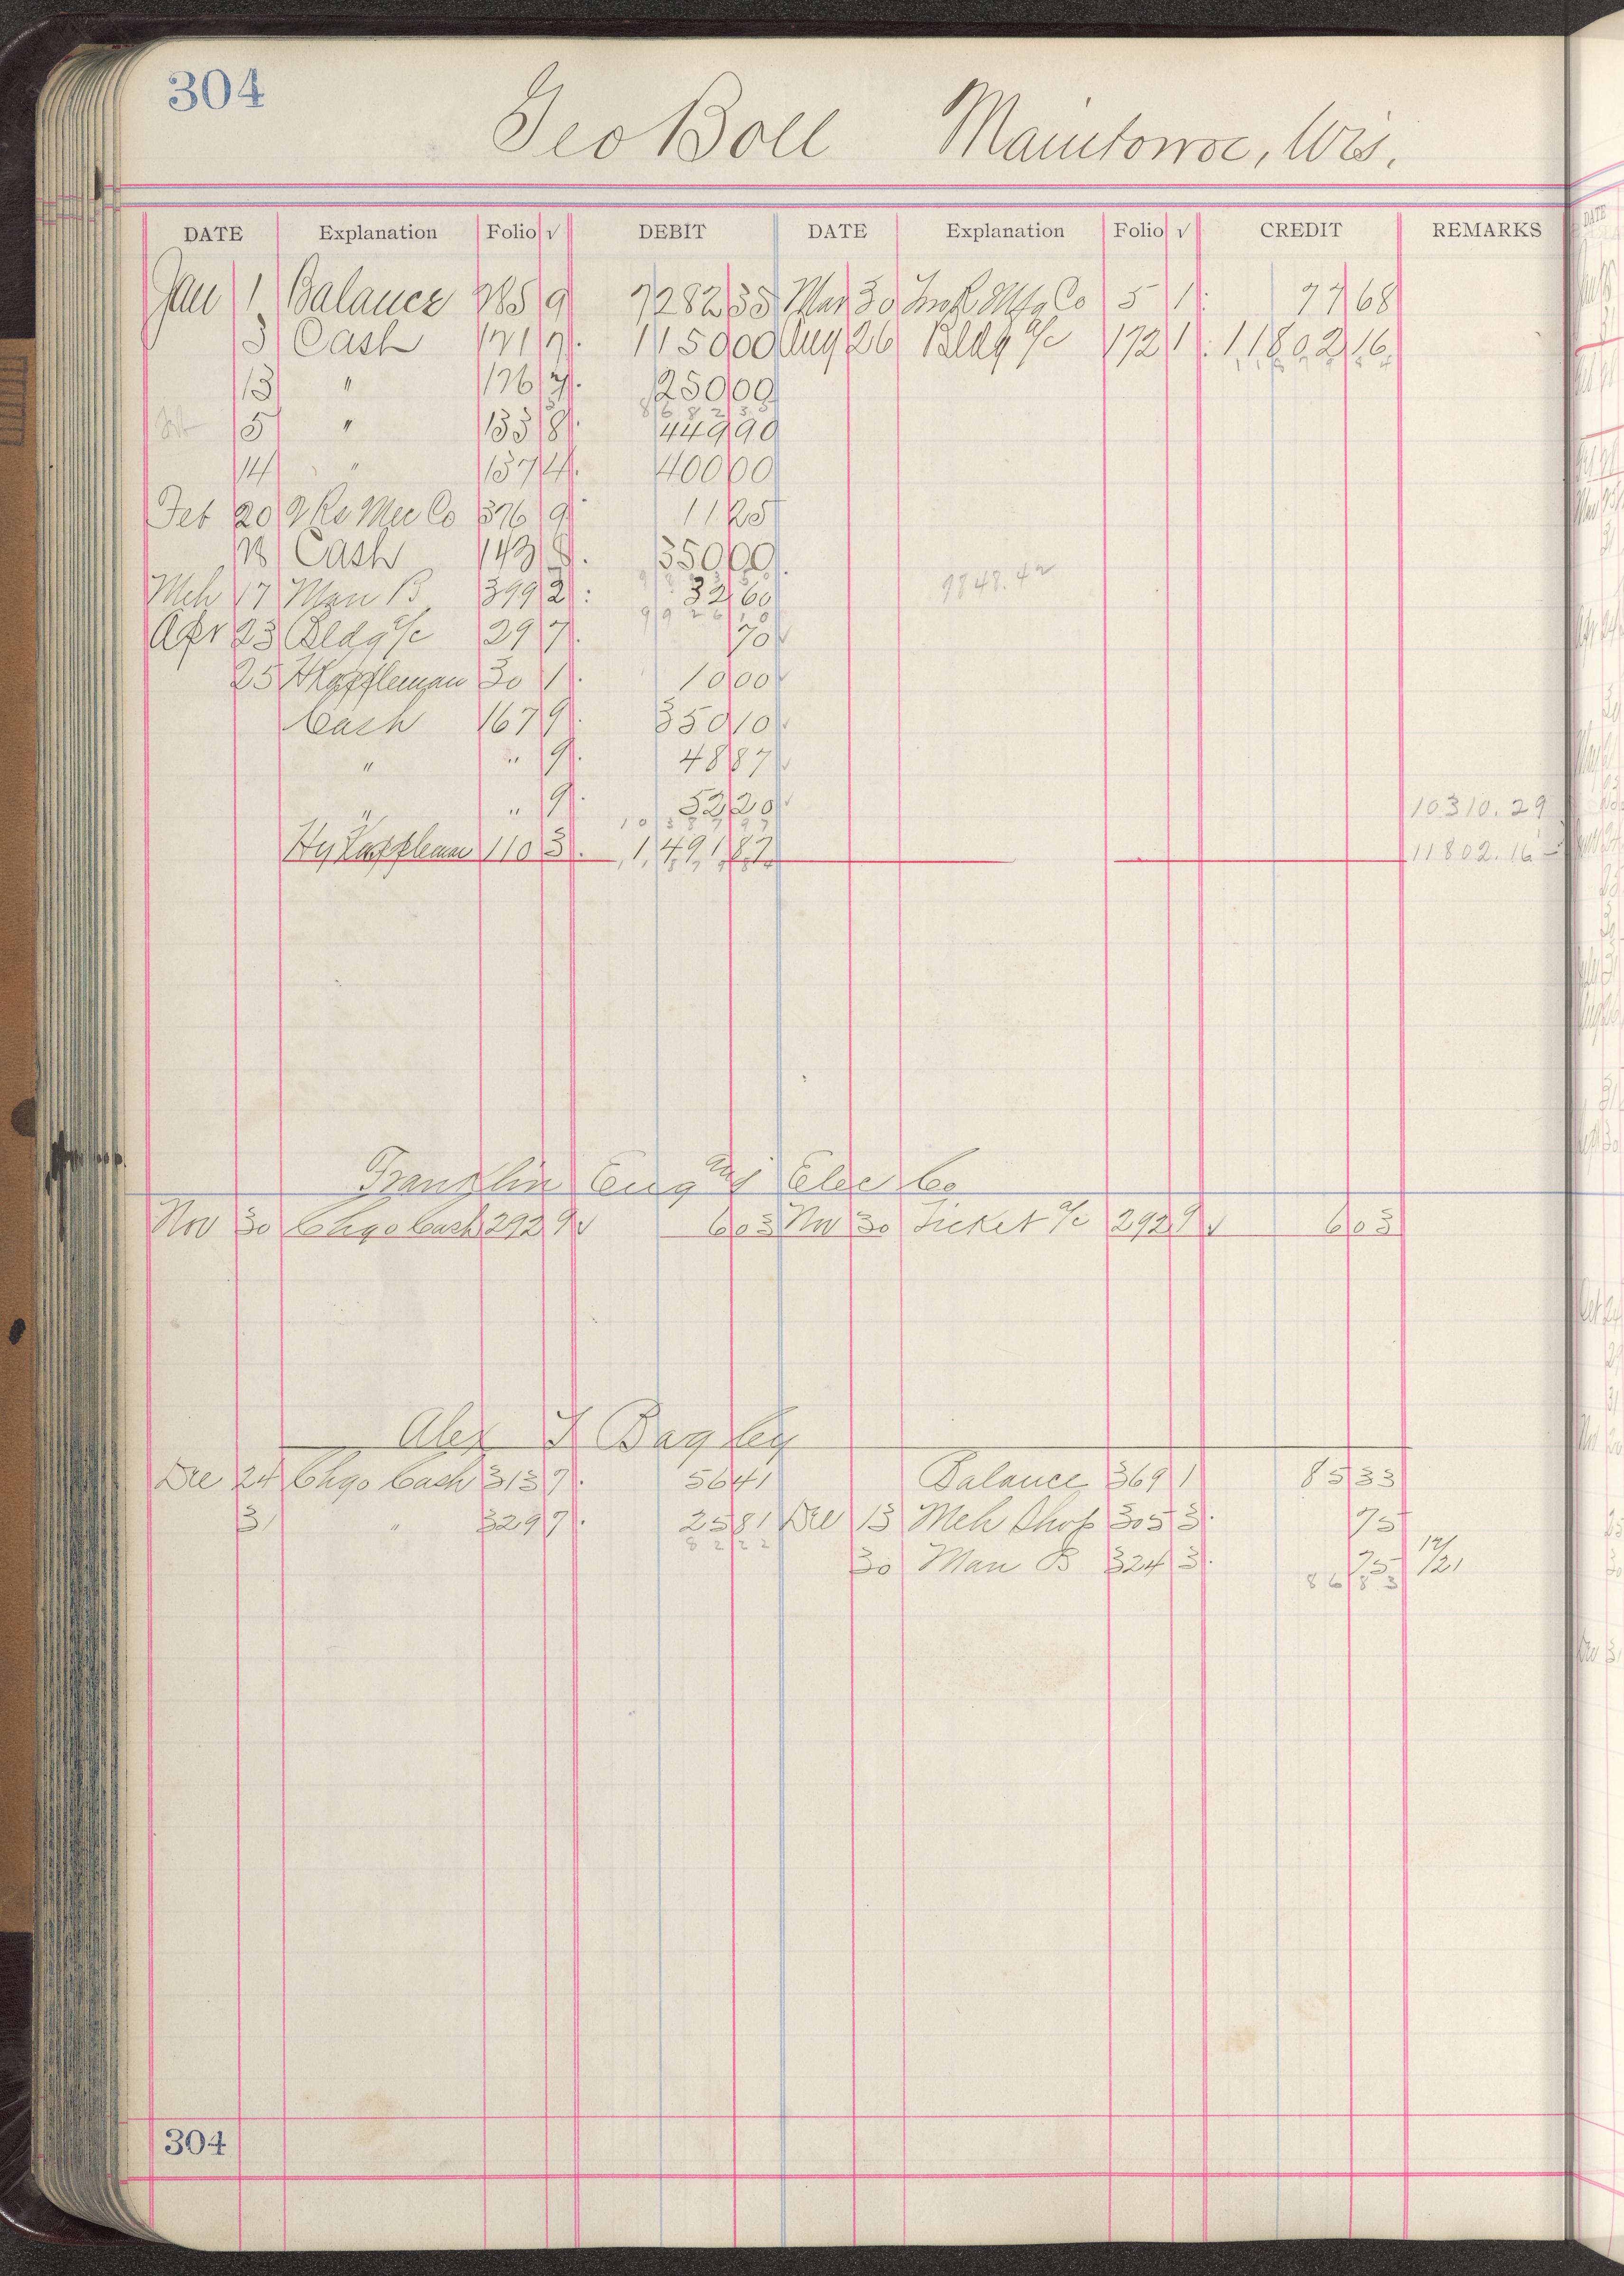 304
Geo Boll Manitowoc, Wis.
DATE Explanation Folio √ DEBIT DATE Explanation Folio √ CREDIT REMARKS
Jan 1 Balance 285 9 728235 Mar 30 Mfg Co 5 1 7768
3 Cash 121 7 115000 Aug 26 Bldg a/c 172 1 1180216
13 " 126 7 25000
868235
5 " 133 8 44990
14 " 137 4 40000
Feb 20 Co 376 9 1125
Cash 143 8 35000
9848.42
Mch 17 Man B 399 2 3260
992610
Apr 23 Bldg a/c 29 7 70
25 H Kaffleman 30 1 1000
Cash 167 9 35010
" " 9 4887
" " 9 5220
10310.29
103
Hy Kaffleman 110 3 149187
11802.16
Franklin Eng and Elec Co
Nov 30 Chgo Cash 292 9 √ 603 Nov 30 Ticket a/c 292 9 √ 603
Alex J Bagley
Dec 24 Chgo Cash 313 7 5641 Balance 369 1 8533
31 " 329 7 2581 Dec 13 Mch Shop 305 3 75
8222
30 Man B 324 3 75 12/21
8683
304